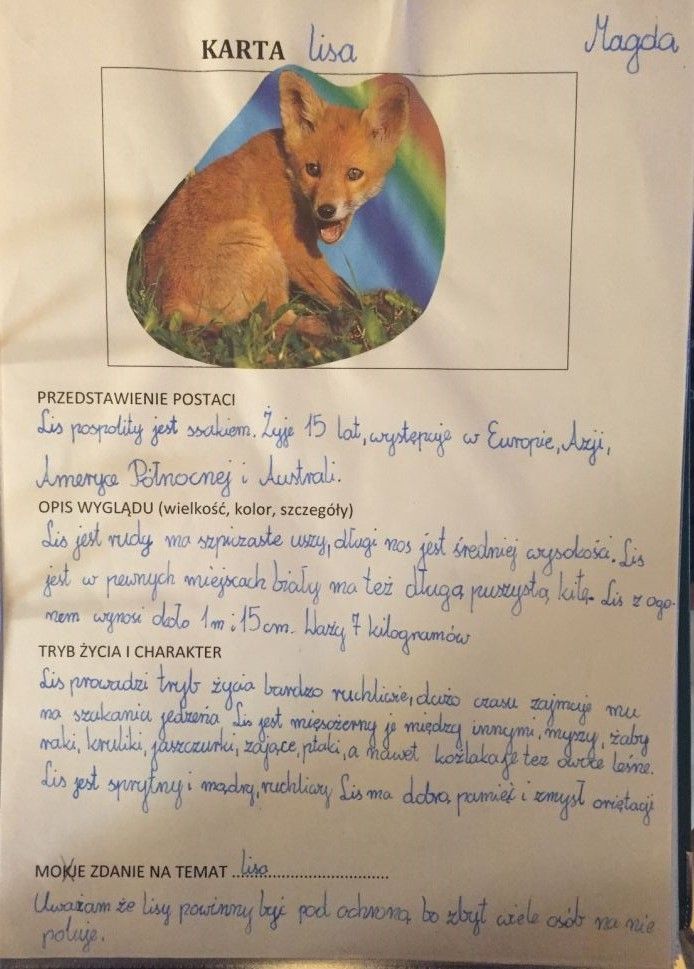 KARTA lisa
Magda
PRZEDSTAWIENIE POSTACI
Lis pospolity jest ssakiem. Żyje 15 lat, występuje w Europie, Azji,
Ameryce Północnej i Australi.
OPIS WYGLĄDU (wielkość, kolor, szczegóły)
Lis jest rudy ma szpiczaste uszy, długi nos jest średniej wysokości. Lis
jest w pewnych miejscach biały ma też długą puszystą kitę. Lis z ogo-
nem wynosi około 1m i 15cm. Waży 7 kilogramów
TRYB ŻYCIA I CHARAKTER
Lis prowadzi tryb życia bardzo ruchliwie, dużo czasu zajmuje mu
na szukania jedzenia Lis jest mięsożerny je między innymi, myszy, żaby
raki, kruliki, jaszczurki, zające, ptaki, a nawet koźlaka je też owoce leśne.
Lis jest sprytny i mądry, ruchliwy Lis ma dobrą pamięć i zmysł oriętacji
MOKJE ZDANIE NA TEMAT ...lisa...........................
Uważam że lisy powinny być pod ochroną bo zbyt wiele osób na nie
poluje.